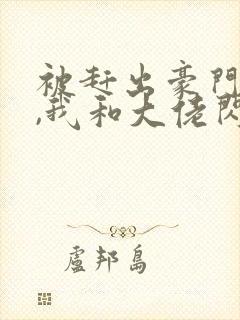 被赶出豪门
,我和大佬闪
盧邦島